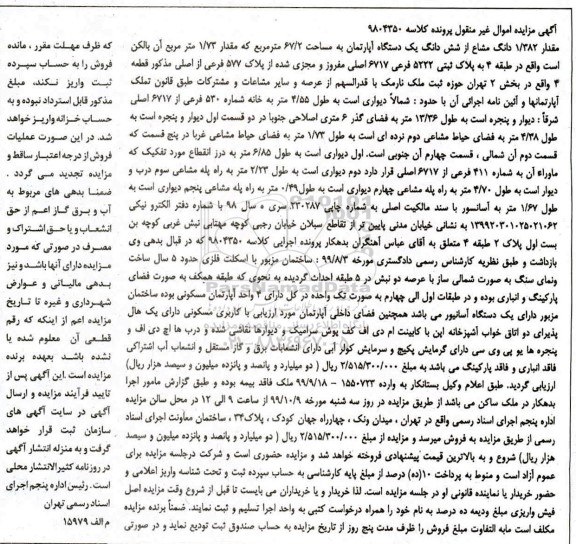 آگهی مزایده اموال غیر منقول پرونده کلاسه ۹۸۰۴۳۵۰
مقدار ۱/۳۸۷ دانگ مشاع از شش دانگ یک دستگاه آپارتمان به مساحت ۶۷/۲ مترمربع که مقدار ۱/۷۳ متر مربع آن بالکن
است واقع در طبقه ۴ به پلاک ثبتی ۵۲۲۲ فرعی ۶۷۱۷ اصلی مفروز و مجزی شده از پلاک ۵۷۷ فرعی از اصلی مذکور قطعه
۴ واقع در بخش ۲ تهران حوزه ثبت ملک نارمک با قدرالسهم از عرصه و سایر مشاعات و مشترکات طبق قانون تملک
آپارتمانها و آئین نامه اجرائی آن با حدود : شمالاً دیواری است به طول ۴/۵۵ متر به خانه شماره ۵۳۰ فرعی از ۶۷۱۷ اصلی
شرقاً : دیوار و پنجره است به طول ۱۳/۳۶ متر به فضای گذر ۶ متری اصلاحی جنوبا در دو قسمت اول دیوار و پنجره است به
طول ۴/۳۸ متر به فضای حیاط مشاعی دوم نرده ای است به طول ۱/۷۳ متر به فضای حیاط مشاعی غربا در پنج قسمت که
قسمت دوم آن شمالی ، قسمت چهارم آن جنوبی است. اول دیواری است به طول ۶/۸۵ متر به درز انقطاع مورد تفکیک که
ماوراء آن به شماره ۴۱۱ فرعی از ۶۷۱۷ اصلی قرار دارد دوم دیواری است به طول ۲/۲۳ متر به راه پله مشاعی سوم درب و
دیوار است به طول ۴/۷۰ متر به راه پله مشاعی چهارم دیواری است به طول ۰/۴۹ متر به راه پله مشاعی پنجم دیواری است به
طول ۱/۶۷ متر به آسانسور با سند مالکیت اصلی به شماره چاپی ۳۳۰۲۸۷ سری ه سال ۹۸ با شماره دفتر الکترو نیکی
۱۳۹۹۲۰۳۰۱۰۲۵۰۲۱۰۶۲ به نشانی خیابان مدنی پایین تر از تقاطع سبلان خیابان رجبی کوچه مهتابی نبش غربی کوچه بن
بست اول پلاک ۲ طبقه ۴ متعلق به آقای عباس آهنگران بدهکار پرونده اجرایی کلاسه ۹۸۰۴۳۵۰ که در قبال بدهی وی
بازداشت و طبق نظریه کارشناس رسمی دادگستری مورخه ۹۹/۸/۳ : ساختمان مزبور با اسکلت فلزی حدود ۵ سال ساخت
ونمای سنگ به صورت شمالی ساز با عرصه دو نبش در ۵ طبقه احداث گردیده به نحوی که طبقه همکف به صورت فضای
پارکینگ و انباری بوده و در طبقات اول الی چهارم به صورت تک واحده در کل دارای ۴ واحد آپارتمان مسکونی بوده ساختمان
مزبور دارای یک دستگاه آسانپور می باشد همچنین فضای داخلی آپارتمان مورد ارزیابی با کاربری مسکونی دارای یک هال
پذیرای دو اتاق خواب آشپزخانه اپن با کابینت ام دی اف کف پوش سرامیک و دیوارها نقاشی شده و درب ها اچ دی اف و
پنجره ها یو پی وی سی دارای گرمایش پکیج و سرمایش کولر آبی دارای انشعابات برق و گاز مستقل و انشعاب آب اشتراکی
فاقد انباری و فاقد پارکینگ می باشد به مبلغ ۲/۵۱۵/۳۰۰/۰۰۰ ریال ( دو میلیارد و پانصد و پانزده میلیون و سیصد هزار ریال)
ارزیابی گردید. طبق اعلام وکیل بستانکار به وارده ۱۵۵۰۷۲۳ – ۹۹/۹/۱۸ ملک فاقد بیمه بوده و طبق گزارش مامور اجرا
بدهکار در ملک ساکن می باشد از طریق مزایده در روز سه شنبه مورخه ۹۹/۱۰/۹ از ساعت ۹ الی ۱۲ در محل سالن مزایده
اداره پنجم اجرای اسناد رسمی واقع در تهران ، میدان ونک ، چهارراه جهان کودک ، پلاک۳۴ ، ساختمان معاونت اجرای اسناد
رسمی از طریق مزایده به فروش میرسد و مزایده از مبلغ ۲/۵۱۵/۳۰۰/۰۰۰ ریال ( دو میلیارد و پانصد و پانزده میلیون و سیصد
هزار ریال) شروع و به بالاترین قیمت پیشنهادی فروخته خواهد شد و مزایده حضوری است و شرکت درجلسه مزایده برای
عموم آزاد است و منوط به پرداخت ۱۰(ده) درصد از مبلغ پایه کارشناسی به حساب سپرده ثبت و تحت شناسه واریز اعلامی و
حضور خریدار یا نماینده قانونی او در جلسه مزایده است. لذا خریدار و یا خریداران می بایست تا قبل از شروع وقت مزایده اصل
فیش واریزی مبلغ ودیعه ده درصد به نام خود را همراه درخواست کتبی به واحد اجرا تسلیم و ثبت نمایند. ضمناً برنده مزایده
مکلف است مابه التفاوت مبلغ فروش را ظرف مدت پنج روز از تاریخ مزایده به حساب صندوق ثبت تودیع نماید و در صورتی
که ظرف مهلت مقرر ، مانده
فروش را به حساب سپرده
ثبت واریز نکند، مبلغ
مذکور قابل استرداد نبوده و به
حساب خزانه واریز خواهد
شد. در این صورت عملیات
فروش از درجه اعتبار ساقط و
مزایده تجدید می گردد .
ضمنا بدهی های مربوط به
آب و برق گاز اعم از حق
انشعاب و یا حق اشتراک و
مصرف در صورتی که مورد
مزایده دارای آنها باشد و نیز
بدهی مالیاتی و عوارض
شهرداری و غیره تا تاریخ
مزایده اعم از اینکه که رقم
قطعی آن معلوم شده یا
نشده باشد بعهده برنده
مزایده است .این آگهی پس از
تایید فرآیند مزایده و ارسال
آگهی در سایت آگهی های
سازمان ثبت قرار خواهد
گرفت و به منزله انتشار آگهی
در روزنامه کثیرالانتشار محلی
است. رئیس اداره پنجم اجرای
اسناد رسمی تهران
م الف ۱۵۹۷۹
ParsNamadData